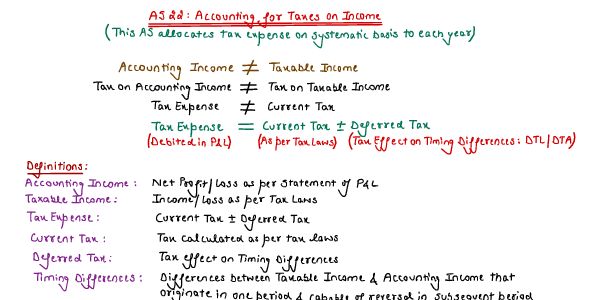 AS 22: Accounting for Taxes on Income
(This AS allocates tax expense on systematic basis to each year)
Accounting Income ≠ Taxable Income
Tax on Accounting Income ≠ Tax on Taxable Income
Tax Expense ≠ Current Tax
Tax Expense = Current Tax ± Deferred Tax
(Debited in P&L) (As per Tax Laws) (Tax Effect on Timing Differences: DTL/DTA)
Definitions:
Accounting Income: Net Profit/Loss as per Statement of P&L
Taxable Income: Income/Loss as per Tax Laws
Tax Expense: Current Tax ± Deferred Tax
Current Tax: Tax calculated as per tax laws
Deferred Tax: Tax effect on Timing Differences
Timing Differences: Differences between Taxable Income & Accounting Income that
originate in one period & capable of reversal in subsequent period